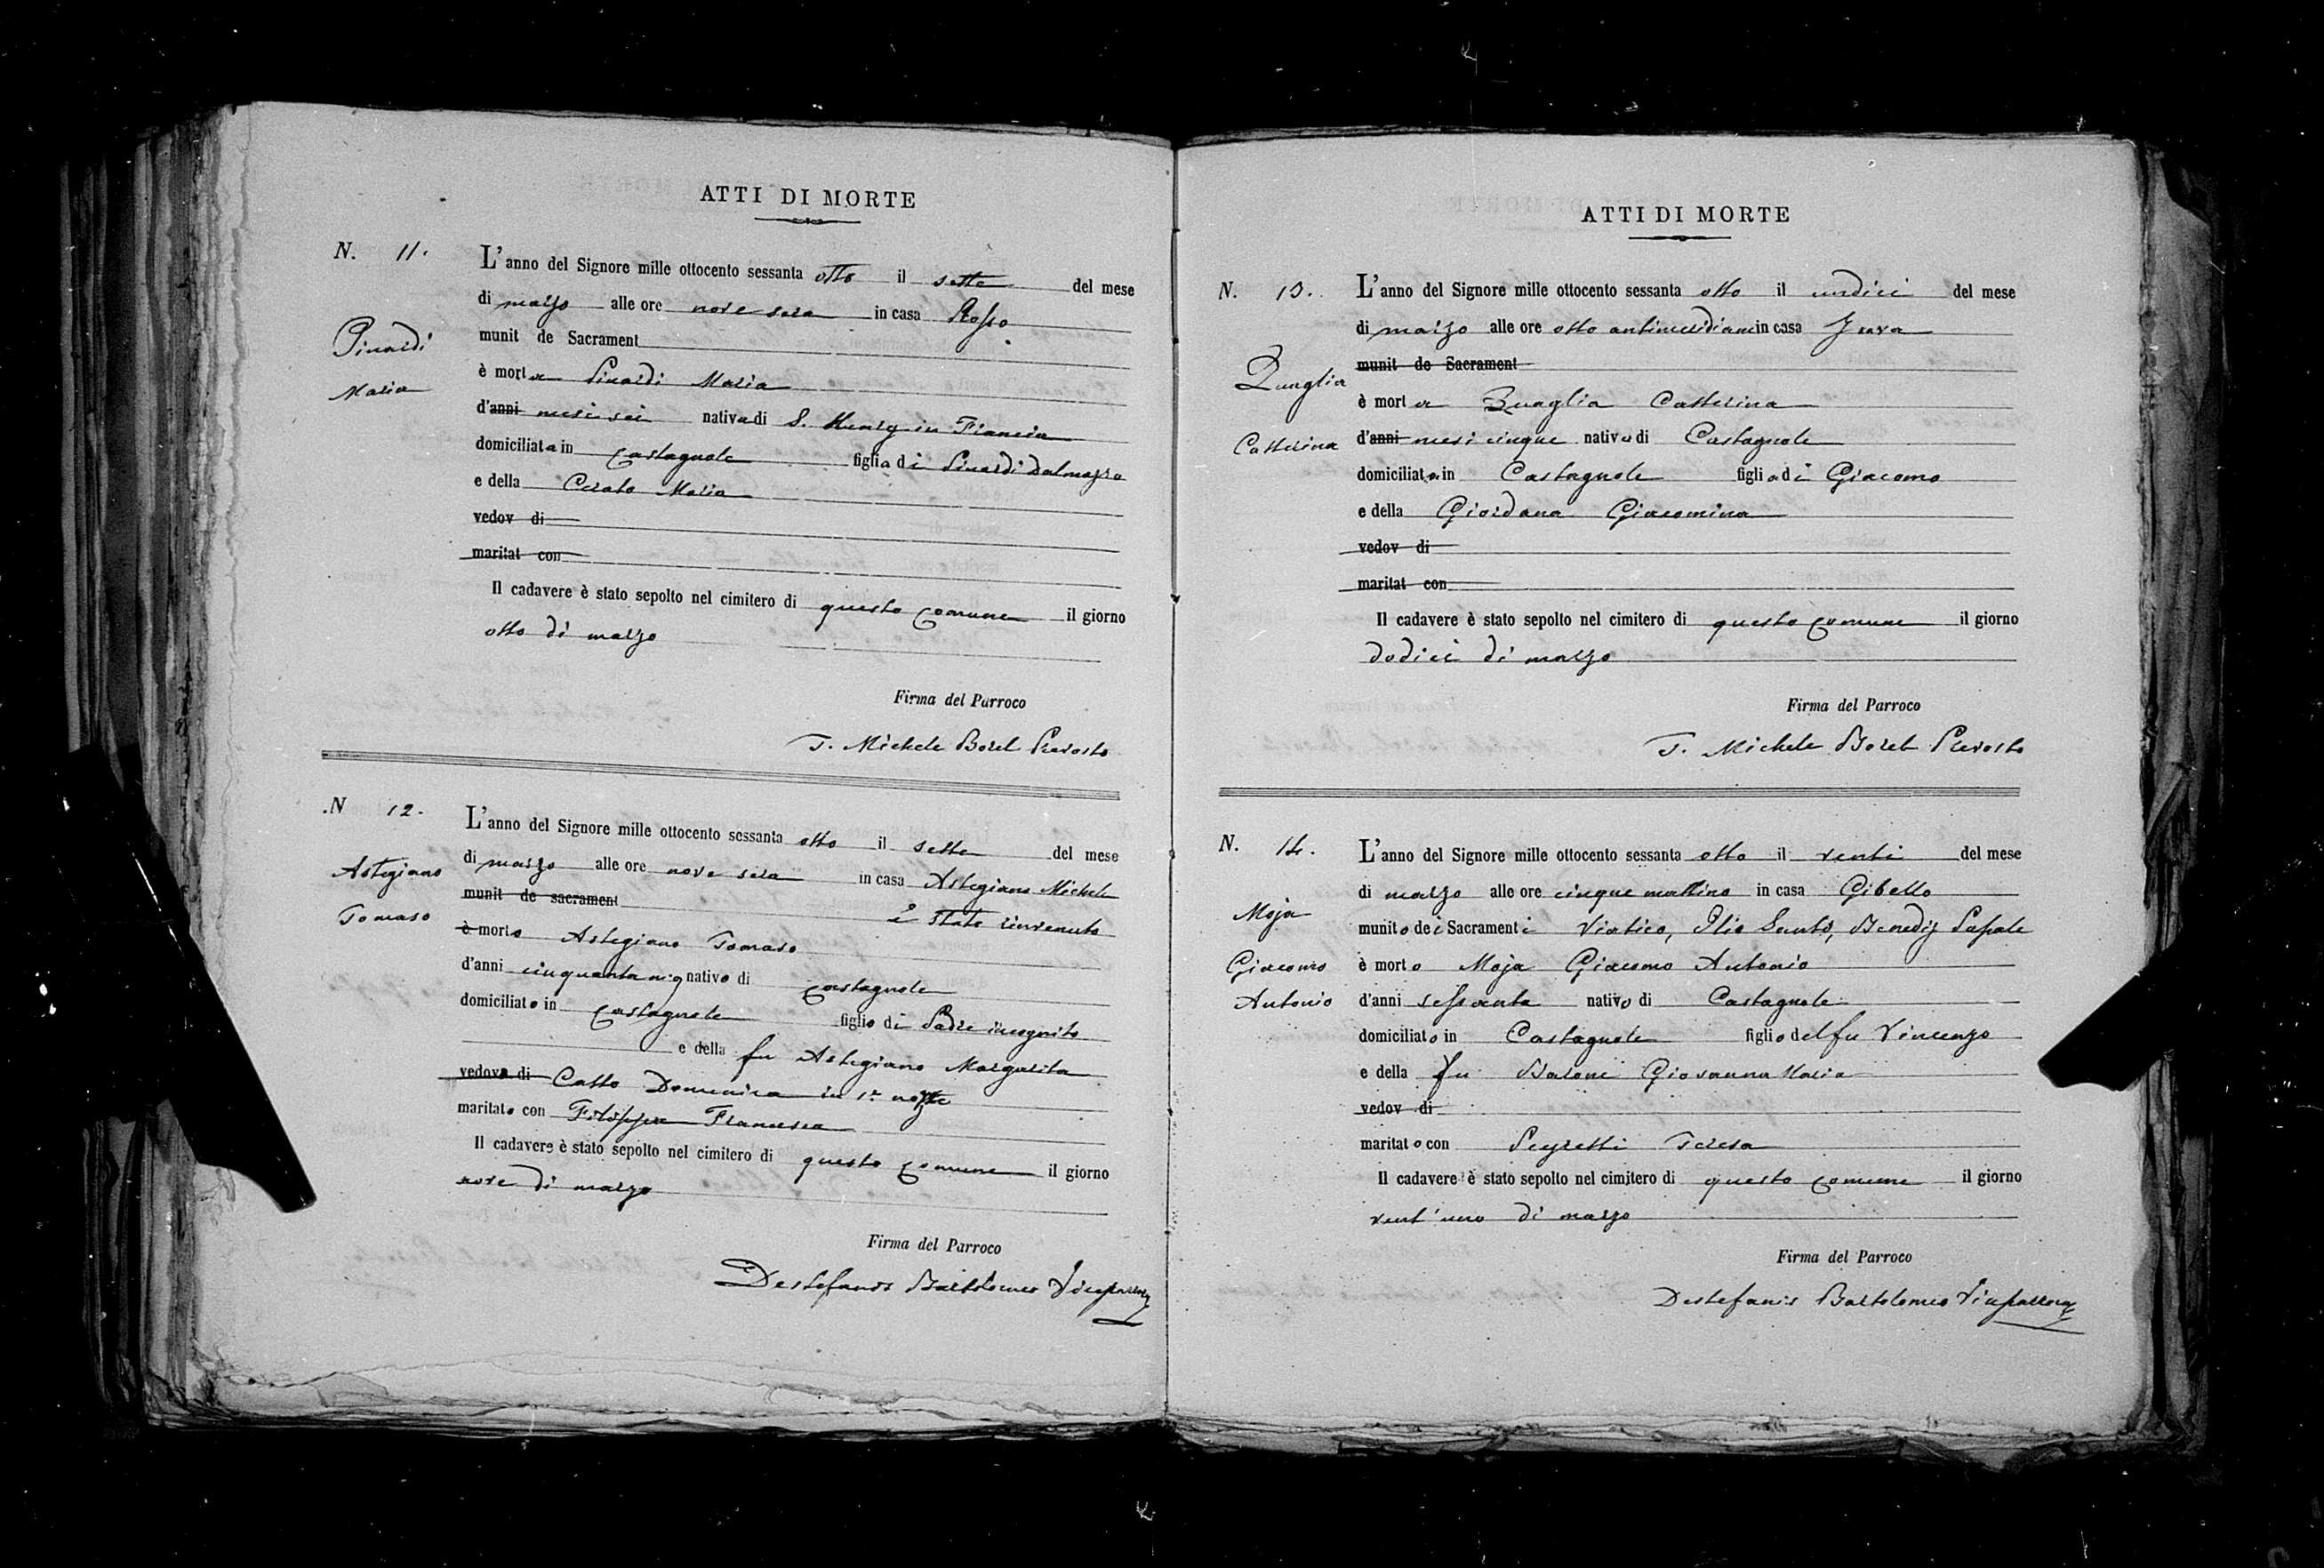 ATTI DI MORTE
N. 11.
Pinardi
Maria
L'anno del Signore mille ottocento sessanta otto il sette del mese
di marzo alle ore nove sera in casa Rosso
munit de Sacrament
è morta Pinardi Maria
d'anni mesi sei nativa di S. in Francia
domiciliata in Castagnole figlia di Pinardi Dalmazzo
e della Cerato Maria
vedov di
maritat con
Il cadavere è stato sepolto nel cimitero di questo comune il giorno
otto di marzo
Firma del Parroco
T. Michele Borel Prevosto
N 12.
Astegiano
Tomaso
L'anno del Signore mille ottocento sessanta otto il sette del mese
di marzo alle ore nove sera in casa Astegiano Michele
munit de sacrament È stato rinvenuto
è morto Astegiano Tomaso
d'anni cinquanta nativo di Castagnole
domiciliato in Castagnole figlio di Padre incognito
e della fu Astegiano Margarita
vedovo di Catto Domenica in 1e nozze
maritato con Francesca
Il cadavere è stato sepolto nel cimitero di questo comune il giorno
nove di marzo
Firma del Parroco
Destefanis Bartolomeo Viceparroco
ATTI DI MORTE
N. 13.
Quaglia
Catterina
L'anno del Signore mille ottocento sessanta otto il undici del mese
di marzo alle ore otto antimeridiane in casa
munit de Sacrament
è morta Quaglia Catterina
d'anni mesi cinque nativa di Castagnole
domiciliata in Castagnole figlia di Giacomo
e della Giordana Giacomina
vedov di
maritat con
Il cadavere è stato sepolto nel cimitero di questo comune il giorno
dodici di marzo
Firma del Parroco
T. Michele Borel Prevosto
N. 14.
Moja
Giacomo
Antonio
L'anno del Signore mille ottocento sessanta otto il venti del mese
di marzo alle ore cinque mattino in casa Gibello
munito dei Sacramenti Viatico, Olio Santo, Benediz Papale
è morto Moja Giacomo Antonio
d'anni sessanta nativo di Castagnole
domiciliato in Castagnole figlio del fu Vincenzo
e della fu Barone Giovanna Maria
vedov di
maritato con Peyretti Teresa
Il cadavere è stato sepolto nel cimitero di questo comune il giorno
vent'uno di marzo
Firma del Parroco
Destefanis Bartolomeo Viceparroco